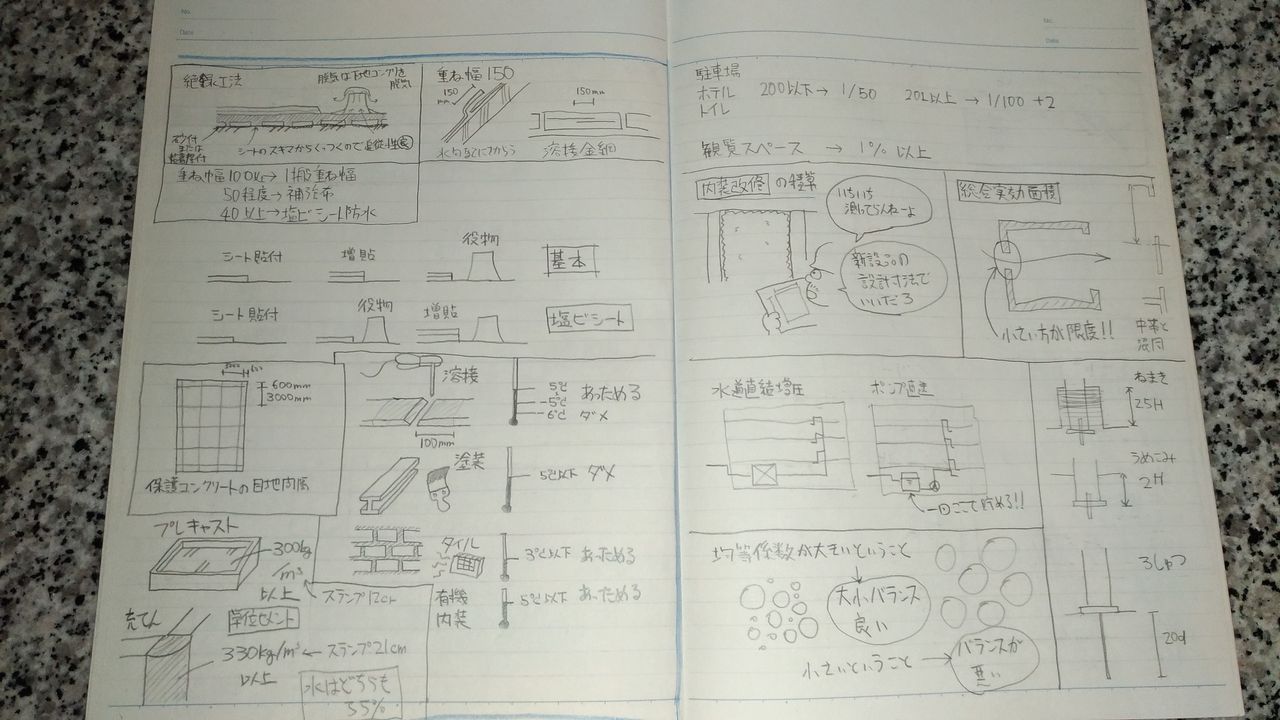 No.
Date
絶縁工法
脱気は下地コンクリを
脱気
シートのスキマからくっつくので
または
重ね幅150
150
mm
150mm
溶接金網
重ね幅100以上→一般重ね幅
50程度→補強布
40以上→塩ビシート防水
シート貼付
増貼
役物
基本
シート貼付
役物
増貼
塩ビシート
600mm
3000mm
保護コンクリートの目地内隔
溶接
100mm
5℃
-5℃
-6℃
あっためる
ダメ
塗装
5℃以下 ダメ
プレキャスト
300kg
/m³
以上
スランプ12cm
タイル
3℃以下 あっためる
有機
内装
5℃以下 あっためる
充てん
単位セメント
330kg/m³ ← スランプ21cm
以上
水はどちらも
55%
No.
Date
駐車場
ホテル
トイレ
200以下→1/50 201以上→1/100 +2
観覧スペース → 1% 以上
内装改修の積算
いちいち
測ってらんねーよ
新設の
設計寸法で
いいだろ
総合実効面積
小さい方が限度!!
水道直結増圧
ポンプ直送
一回ここで貯める!!
ねまき
25H
うめこみ
2H
ろしゅつ
20d
均等係数が大きいということ
大小バランス
良い
小さいということ →
バランスが
悪い